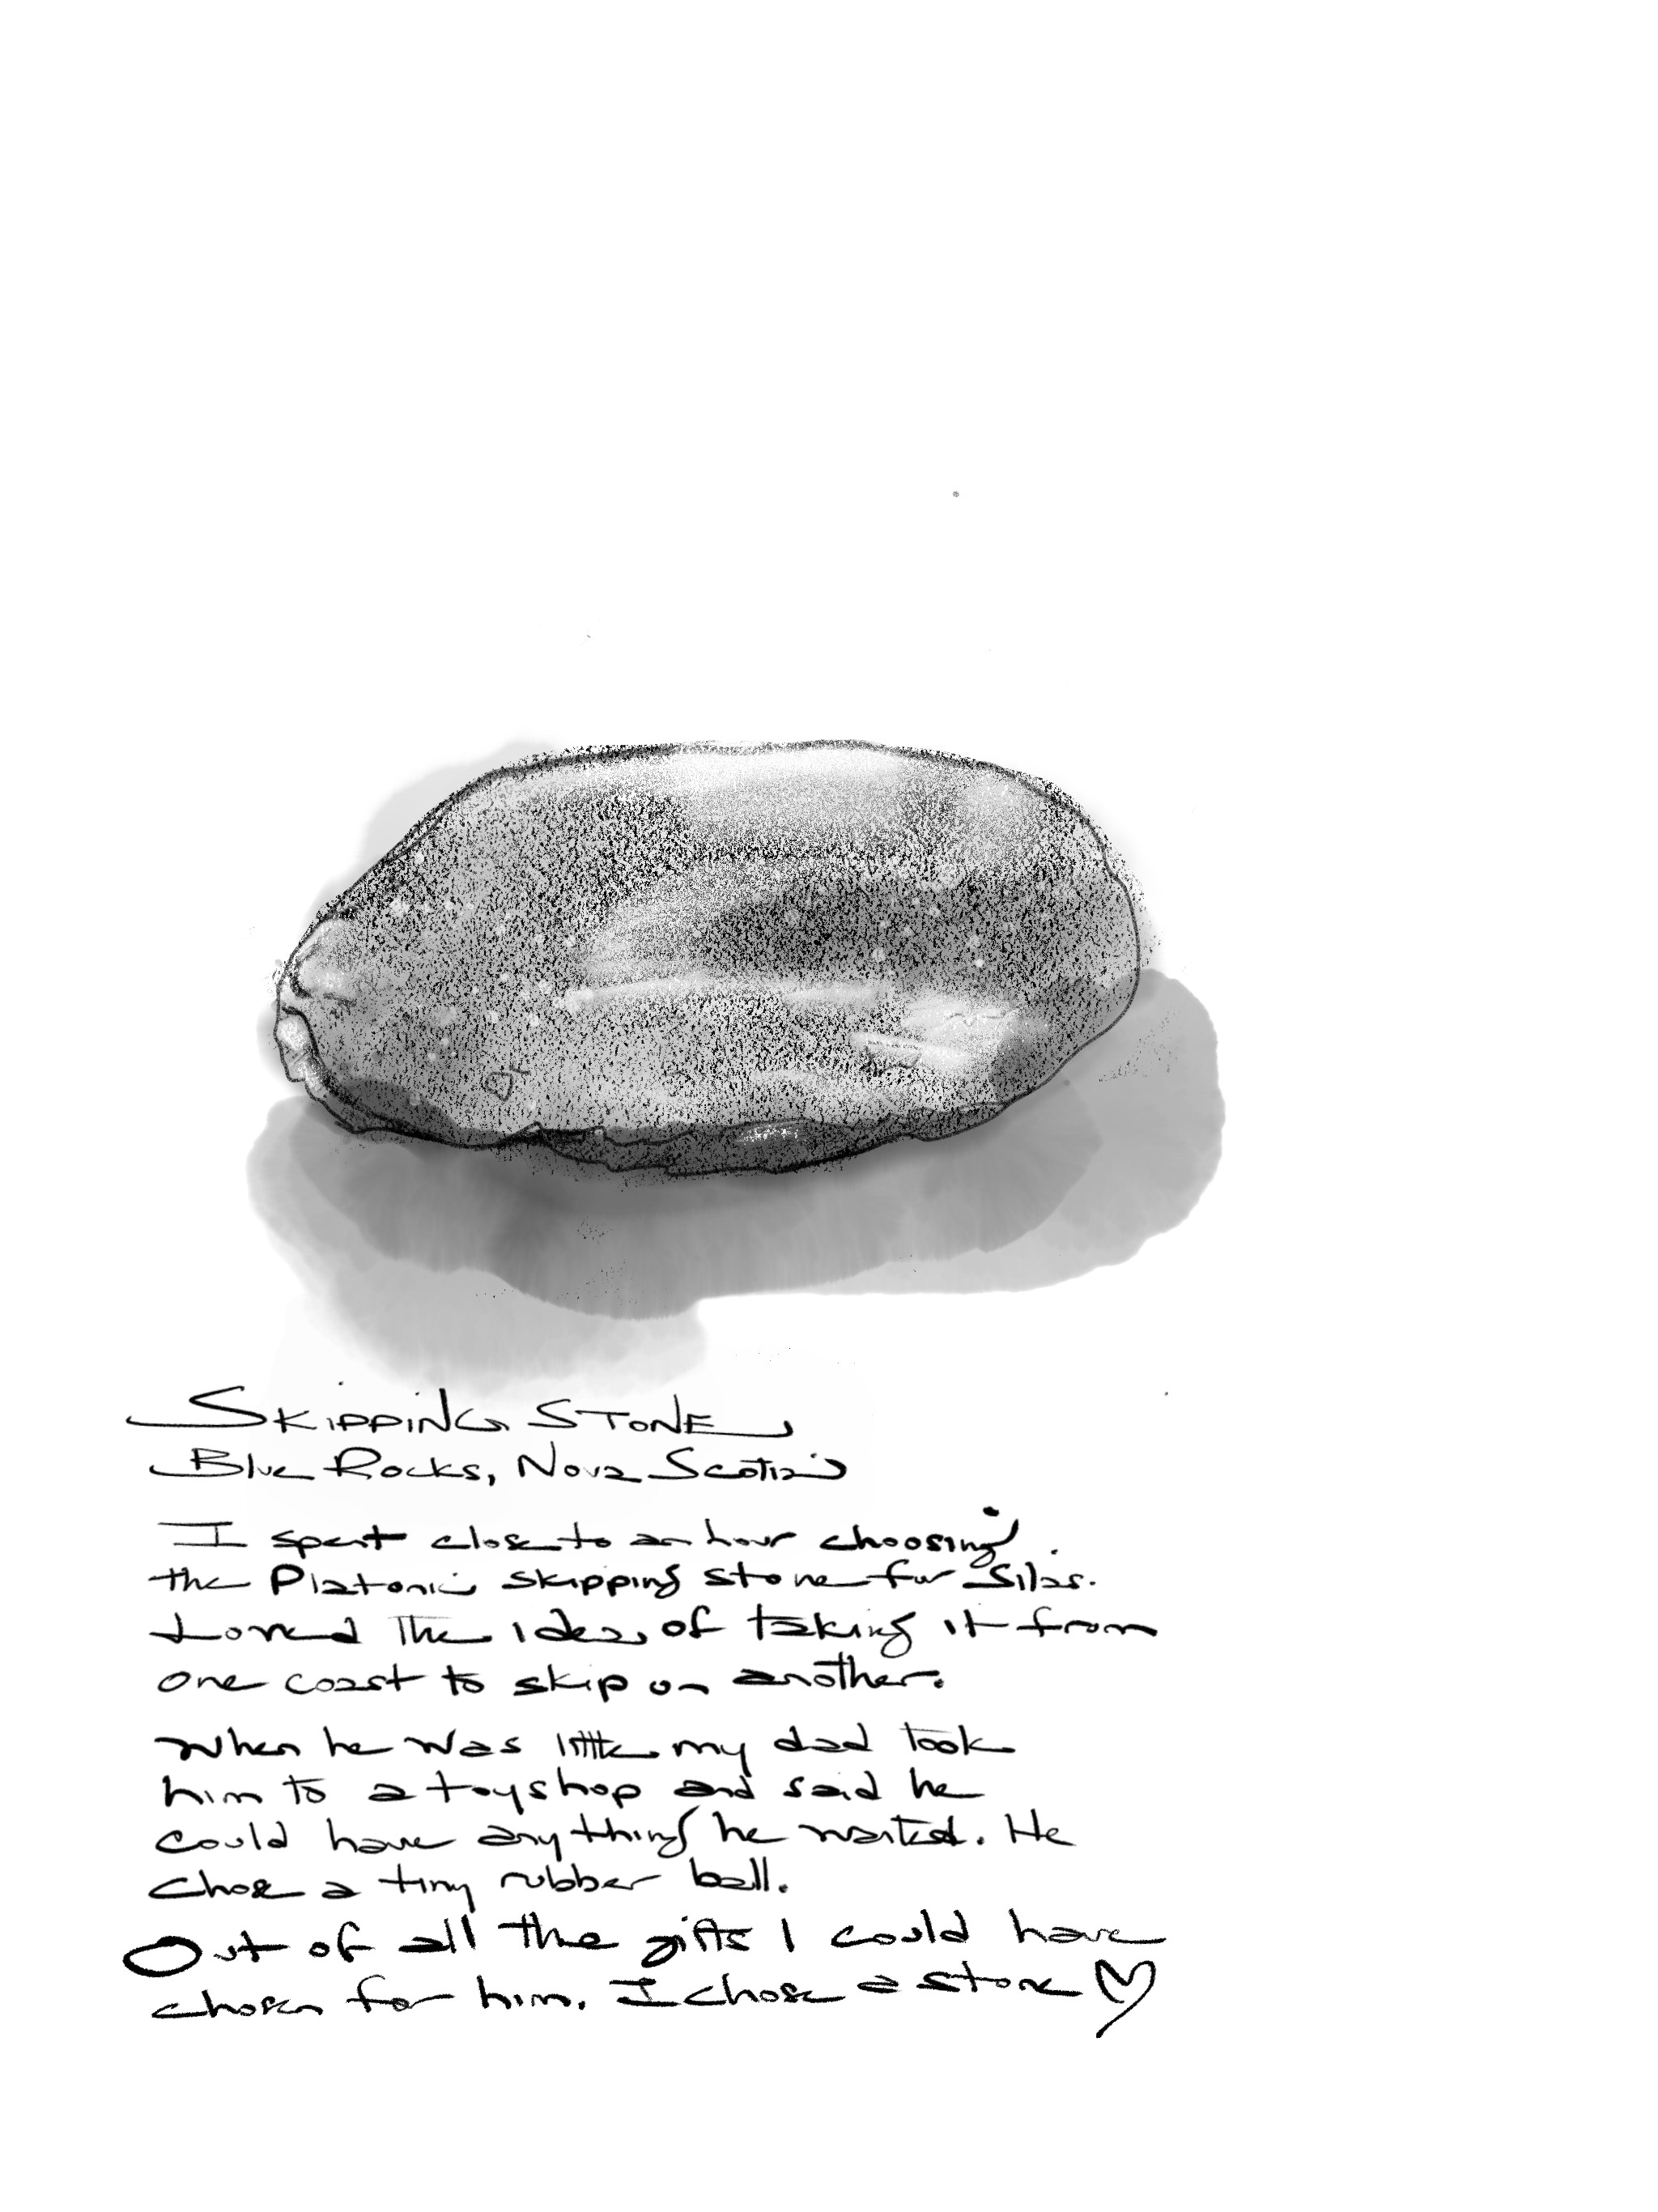 SKIPPING STONE
Blue Rocks, Nova Scotia
I spent close to an hour choosing
the Platonic skipping stone for Silas.
Loved the idea of taking it from
one coast to skip on another.
When he was little my dad took
him to a toyshop and said he
could have anything he wanted. He
chose a tiny rubber ball.
Out of all the gifts I could have
chosen for him, I chose a stone